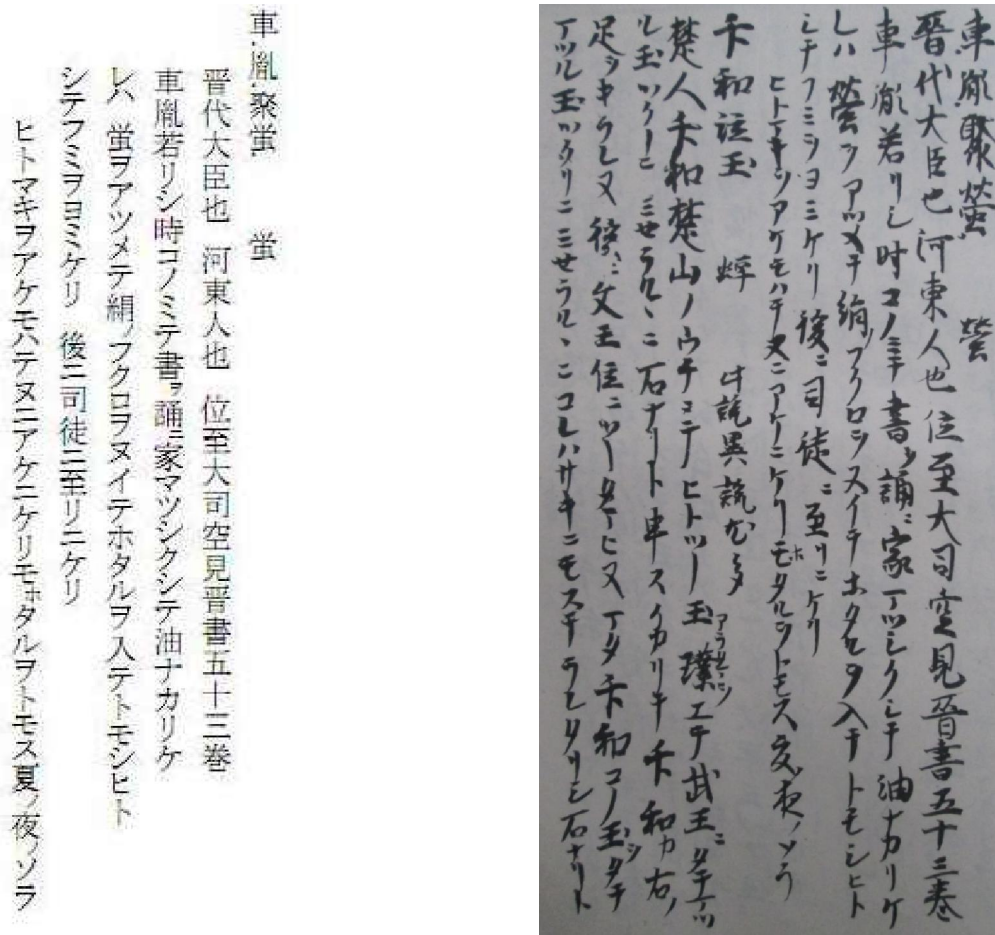 車胤聚螢 螢
晉代大臣也河東人也位至大司空見晉書五十三巻
車胤若リシ時コノミテ書ヲ誦ニ家マツシクシテ油ナカリケ
レハ螢ヲアツメテ絹ノフクロヲヌイテホタルヲ入テトモシヒト
シテフミヲヨミケリ後ニ司徒ニ至リニケリ
ヒトマキヲアケモハテヌニアケニケリモホタルヲトモス夏ノ夜ノソラ
卞和泣玉 此説異説
楚人卞和楚山ノウチニテヒトツノ玉璞エテ武王ニタテマツ
ル玉ツクリニミセラルヽニ石ナリト申スイカリテ卞和カ右ノ
足ヲキラレヌ後ニ文王位ニツキタマヒヌマタ卞和コノ玉ヲタテ
マツル玉ツクリニミセラルヽニコレハサキニモステラレタリシ石ナリト
車胤聚蛍 蛍
晋代大臣也 河東人也 位至大司空見晋書五十三巻
車胤若リシ時コノミテ書ヲ誦ニ家マツシクシテ油ナカリケ
レハ 蛍ヲアツメテ絹ノフクロヲヌイテホタルヲ入テトモシヒト
シテフミヲヨミケリ 後ニ司徒ニ至リニケリ
ヒトマキヲアケモハテヌニアケニケリモホタルヲトモス夏ノ夜ノソラ